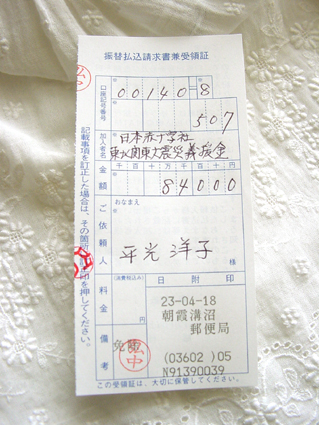 振替払込請求書兼受領証
公中
口座記号番号
00140=8
507
加入者名
日本赤十字社
東北関東大震災義援金
金額
千 百 十 万 千 百 十 円
84000
ご依頼人
おなまえ
平光洋子
様
料金
(消費税込み)
円
日附印
23-04-18
朝霞溝沼
郵便局
備考
免
公中
(03602)05
N91390039
記載事項を訂正した場合は、その箇所に訂正印を押してください。
この受領証は、大切に保管してください。